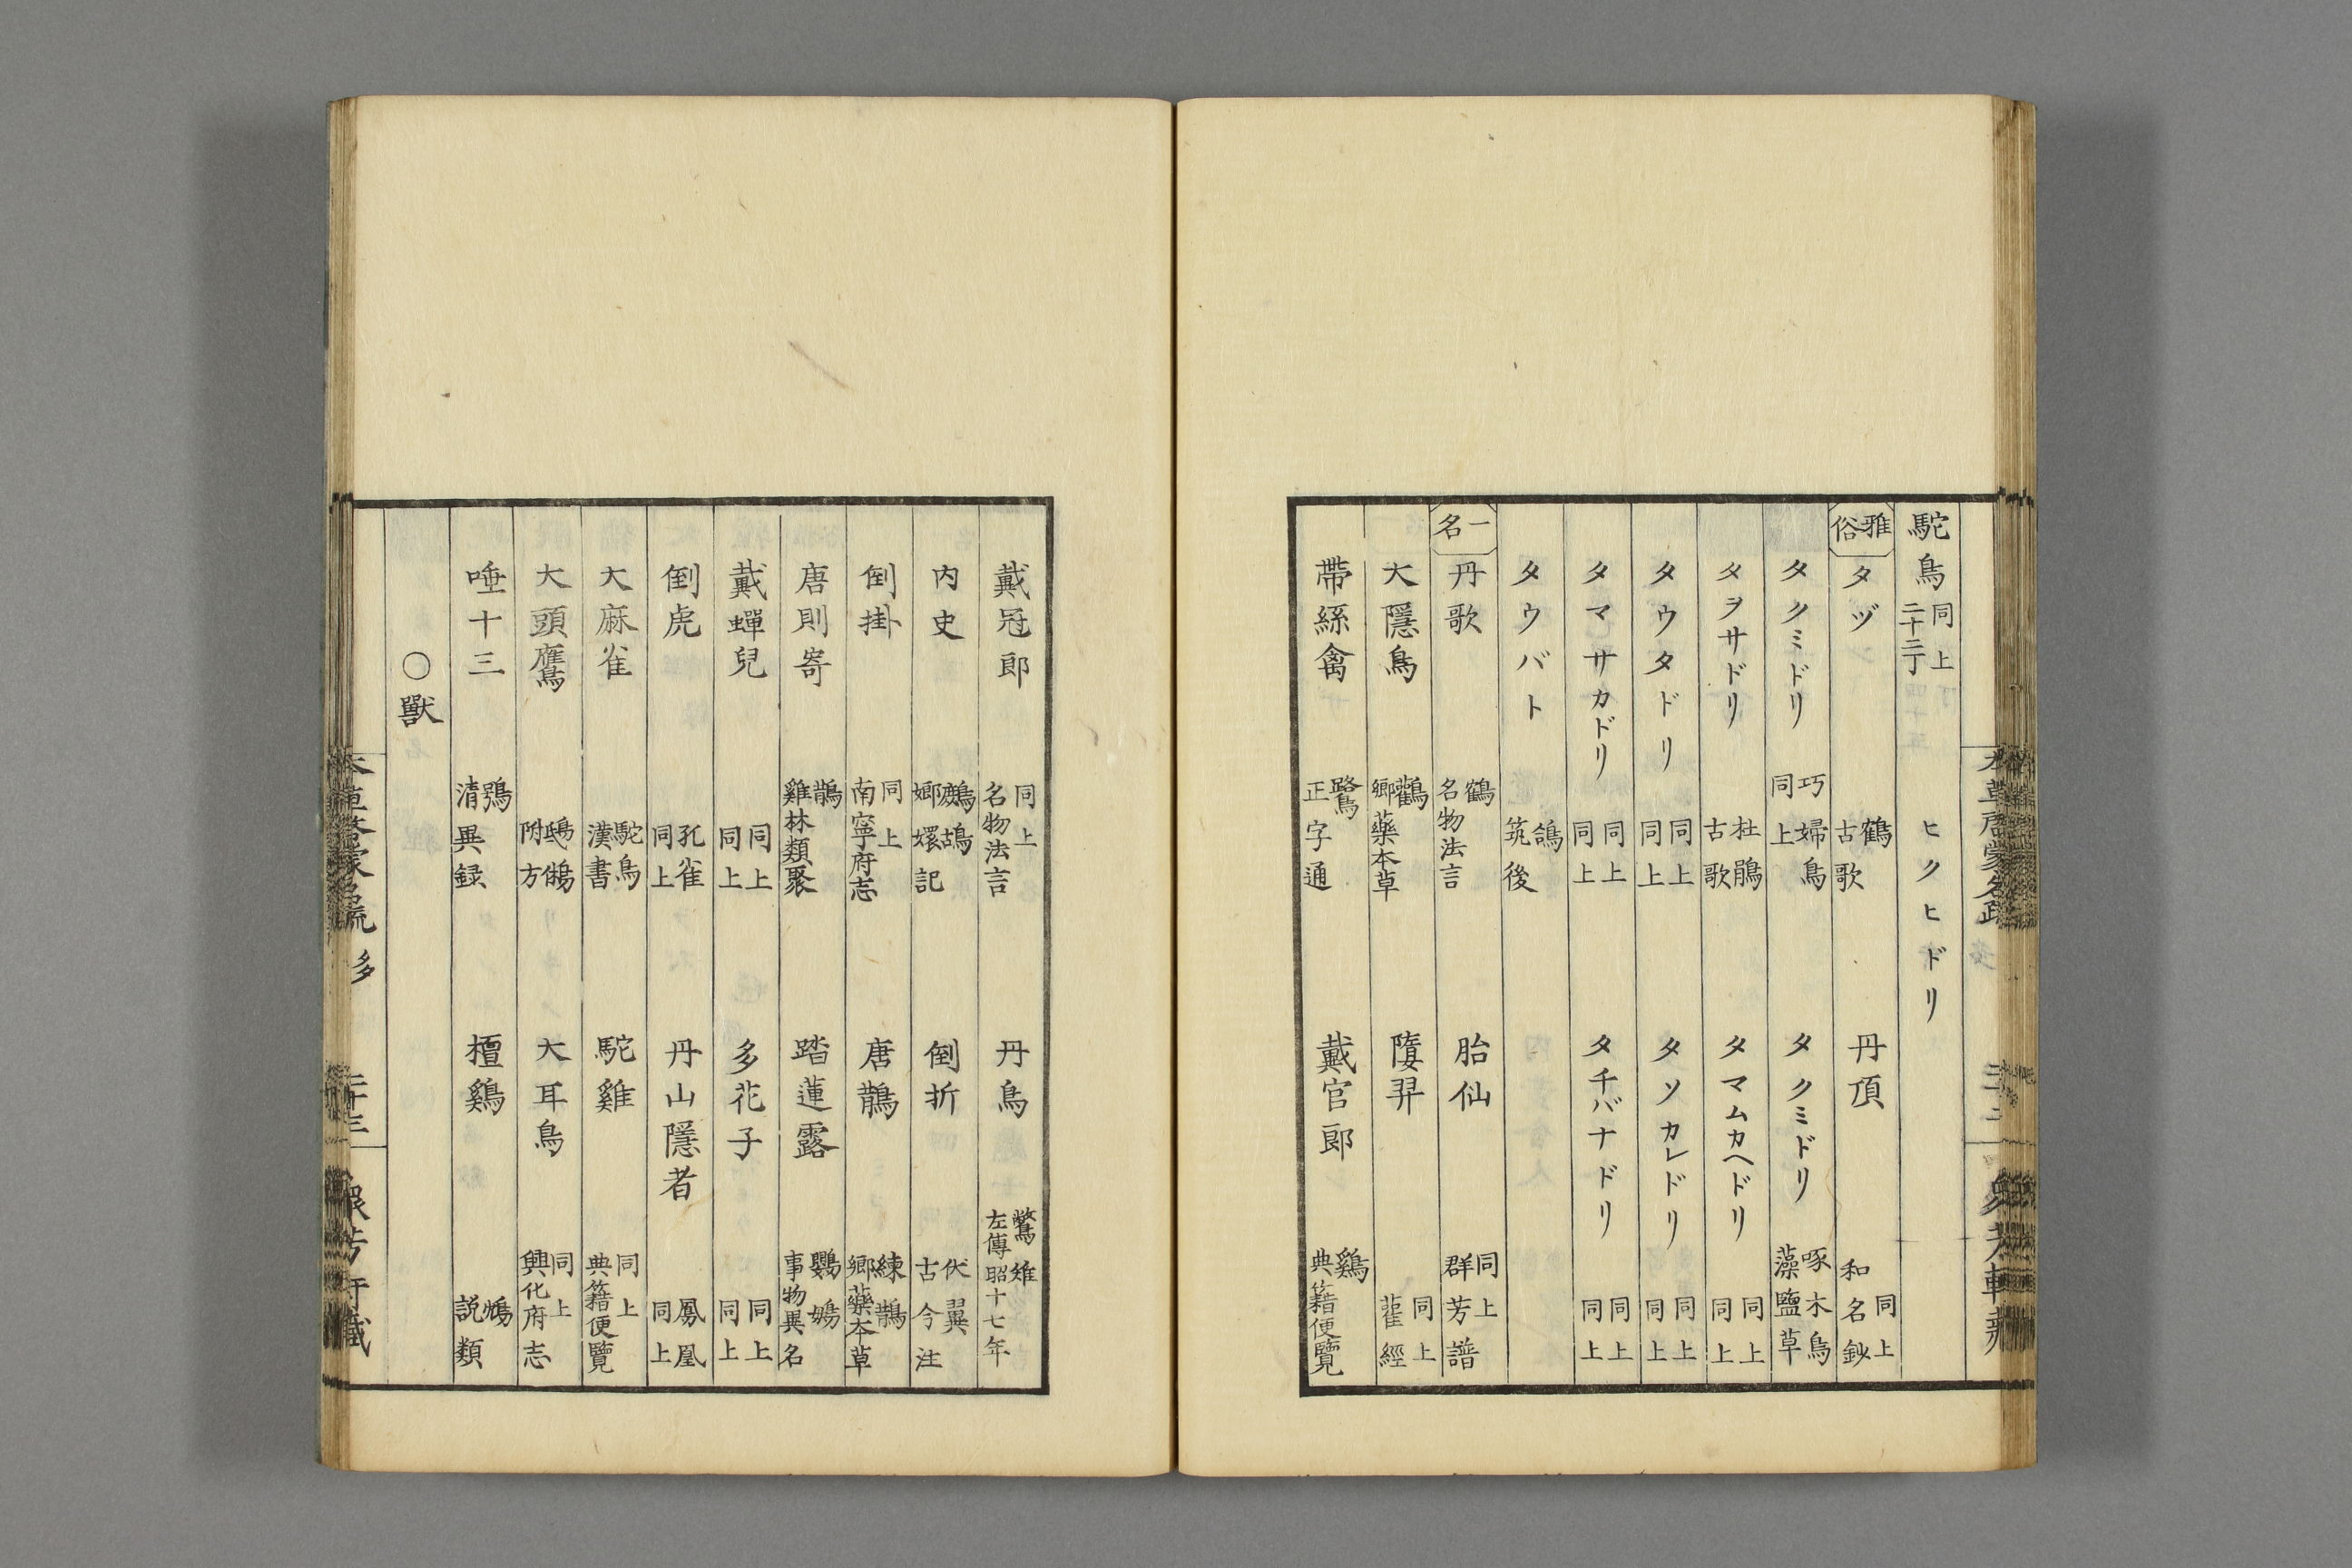 駝鳥 同上 二十二丁 ヒクヒドリ
雅俗 タヅ 鶴 古歌 丹頂 同上 和名鈔
タクミドリ 巧婦鳥 同上 タクミドリ 啄木鳥 藻鹽草
タヲサドリ 杜鵑 古歌 タマムカヘドリ 同上 同上
タウタドリ 同上 同上 タソカレドリ 同上 同上
タマサカドリ 同上 同上 タチバナドリ 同上 同上
タウバト 鴿 筑後
一名 丹歌 鶴 名物法言 胎仙 同上 群芳譜
大隱鳥 鸛 鄉藥本草 隨羿 同上 雚經
帶絲禽 鷺 正字通 戴官郎 鷄 典籍便覽
戴冠郎 同上 名物法言 丹鳥 鷩雉 左傳昭十七年
内史 鷓鴣 嫏嬛記 倒折 伏翼 古今注
倒掛 同上 南寧府志 唐鵲 練鵲 鄉藥本草
唐則嵜 鵲 雞林類聚 踏蓮露 鸚鵡 事物異名
戴蟬兒 同上 同上 多花子 同上 同上
倒虎 孔雀 同上 丹山隱者 鳳凰 同上
大麻雀 駝鳥 漢書 駝雞 同上 典籍便覽
大頭鷹 鴟鵂 附方 大耳鳥 同上 興化府志
唾十三 鴞 清異録 檀鷄 鴆 説類
○獸
本草啓蒙名疏 多 二十三 衆芳軒藏